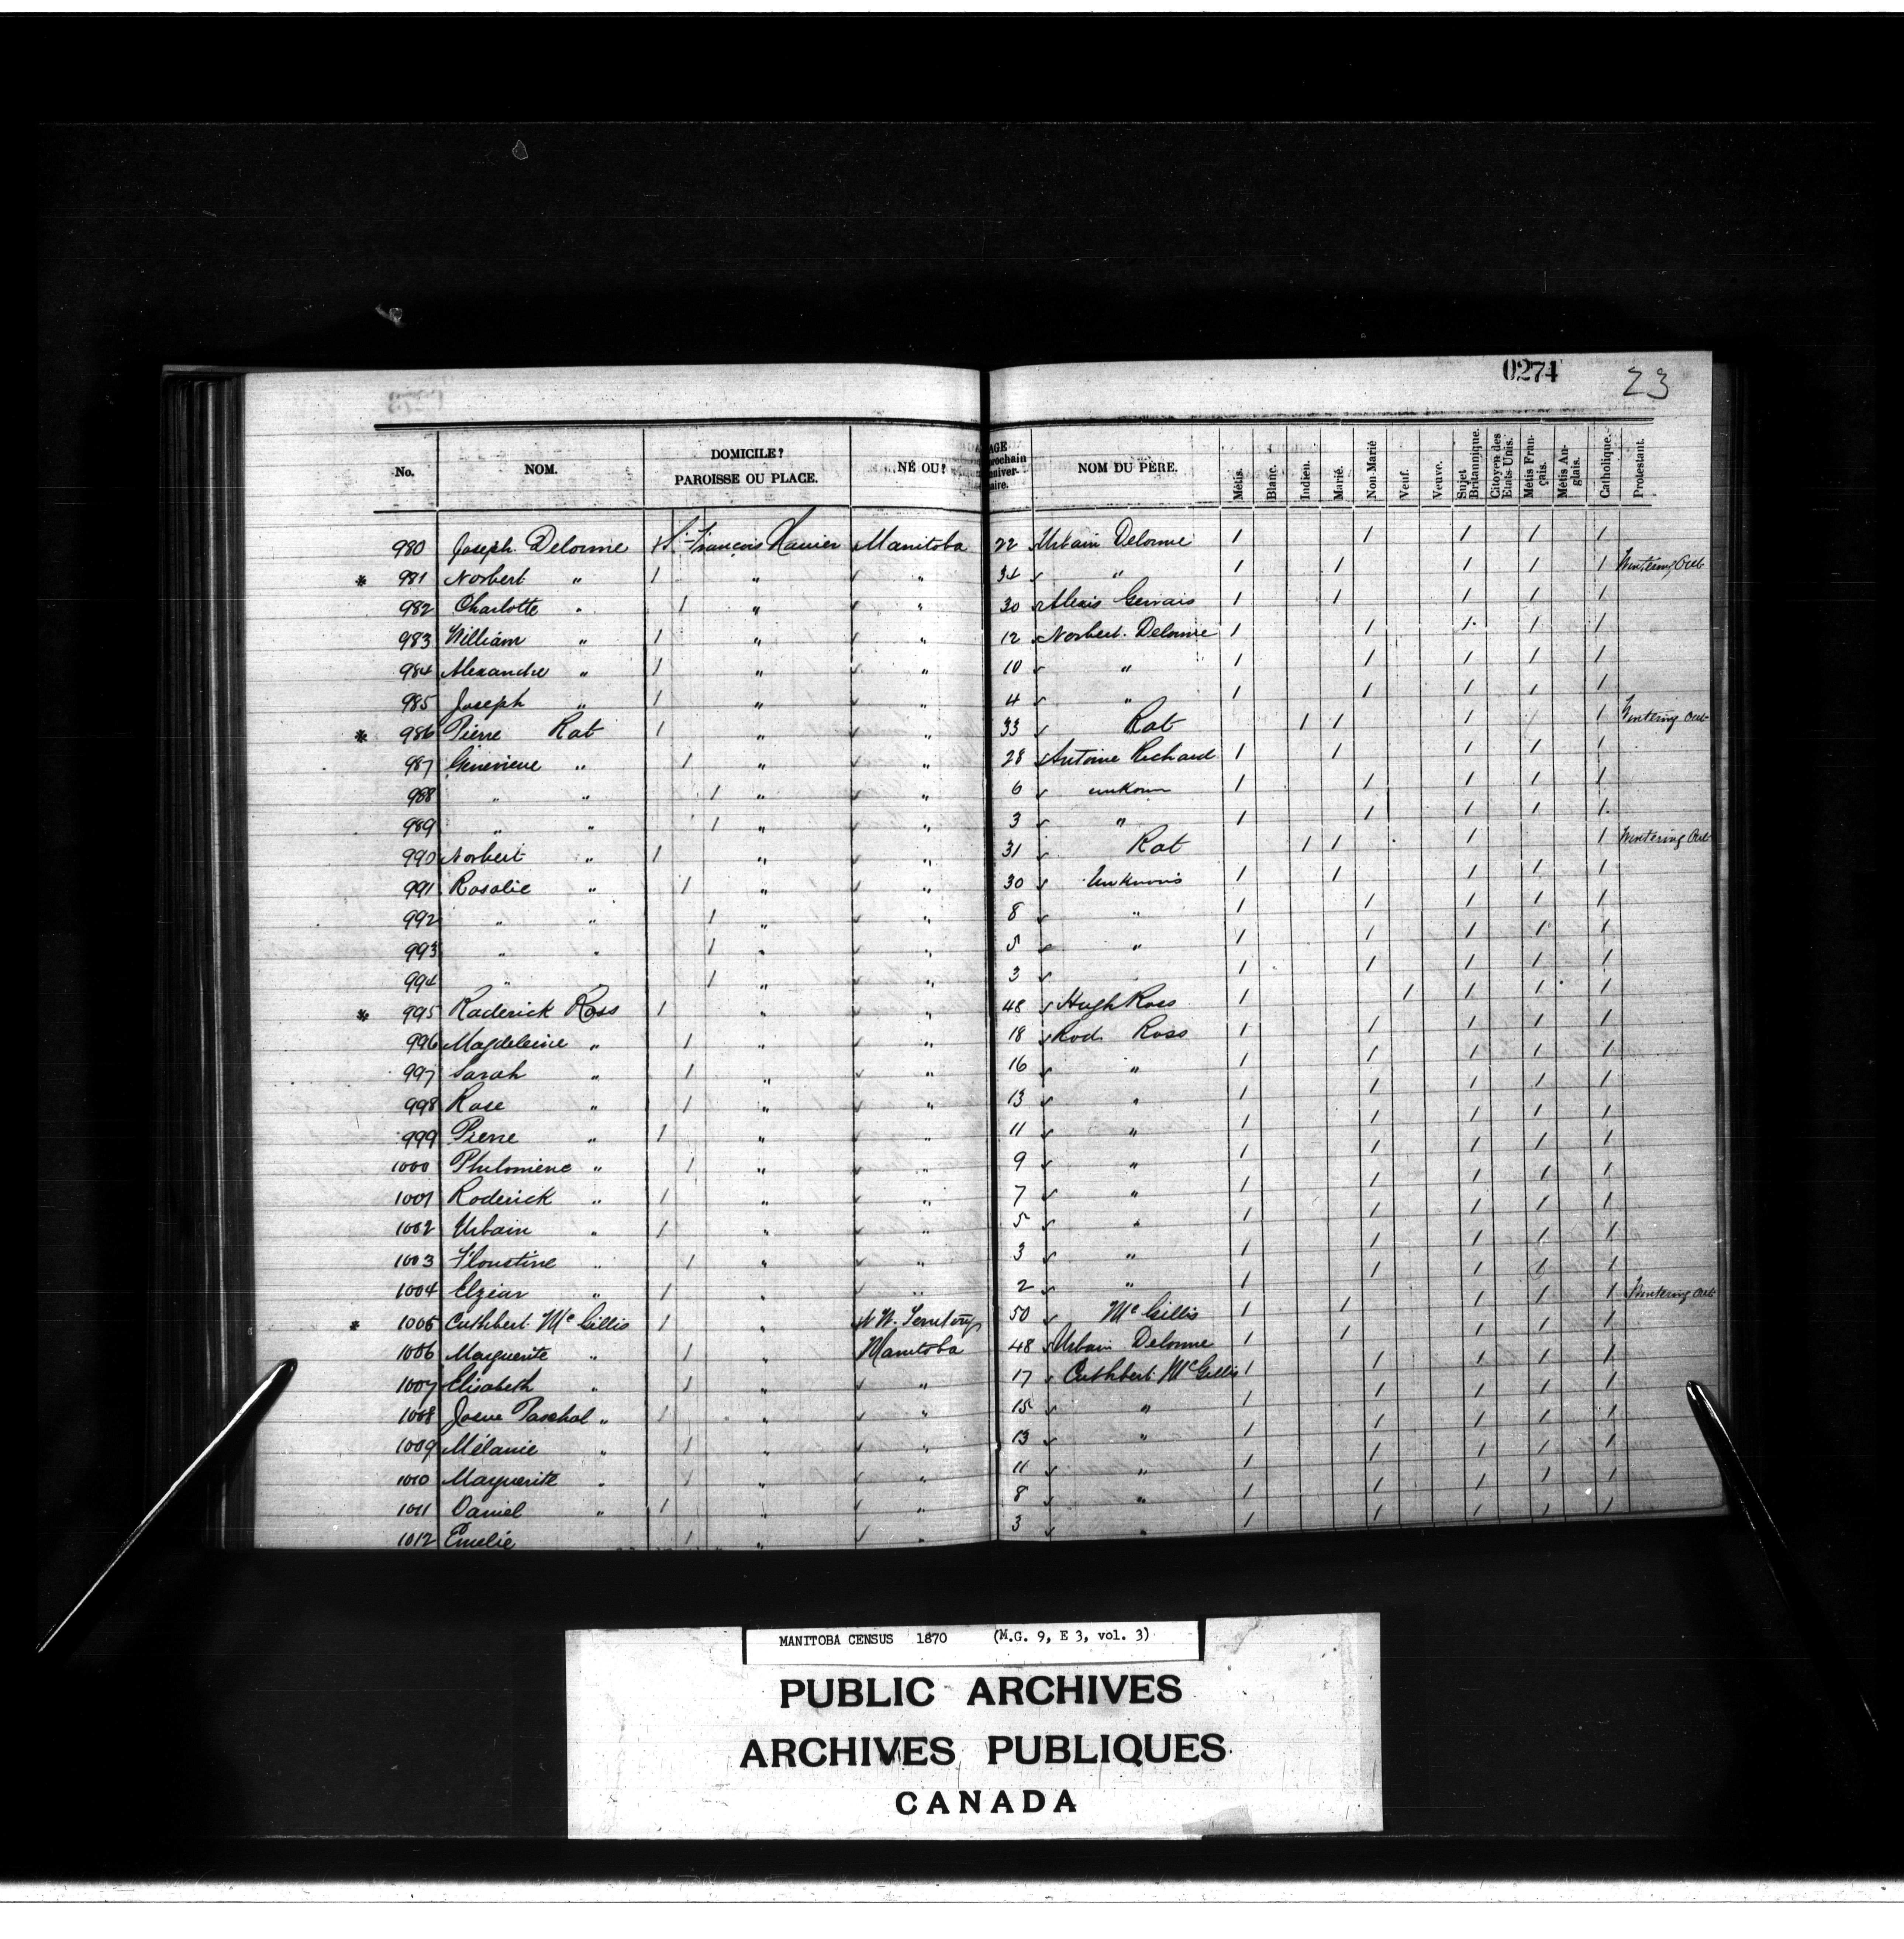 0274 23
No. NOM. DOMICILE? PAROISSE OU PLACE. NÉ OU? AGE prochain anniver- saire. NOM DU PÈRE. Métis. Blanc. Indien. Marié. Non-Marié Veuf. Veuve. Sujet Britannique. Citoyen des Etats-Unis. Métis Fran- çais. Métis An- glais. Catholique. Protestant.
980 Joseph Delorme 1 St-François Xavier Manitoba 22 Urbain Delorme 1 1 1 1 1
* 981 Norbert " 1 " " 34 " 1 1 1 1 1 Wintering Out
982 Charlotte " 1 " " 30 Alexis Gervais 1 1 1 1 1
983 William " 1 " " 12 Norbert Delorme 1 1 1 1 1
984 Alexandre " 1 " " 10 " 1 1 1 1 1
985 Joseph " 1 " " 4 " 1 1 1 1 1
* 986 Pierre Rat 1 " " 33 Rat 1 1 1 1 Wintering Out
987 Genevieve " 1 " " 28 Antoine Richard 1 1 1 1 1
988 " " 1 " " 6 unkown 1 1 1 1 1
989 " " 1 " " 3 " 1 1 1 1 1
990 Norbert " 1 " " 31 Rat 1 1 1 1 Wintering Out
991 Rosalie " 1 " " 30 Unknown 1 1 1 1 1
992 " " 1 " " 8 " 1 1 1 1 1
993 " " 1 " " 5 " 1 1 1 1 1
994 " " 1 " " 3 1 1 1 1 1
* 995 Raderick Ross 1 " " 48 Hugh Ross 1 1 1 1 1
996 Magdeleine " 1 " " 18 Rod. Ross 1 1 1 1 1
997 Sarah " 1 " " 16 " 1 1 1 1 1
998 Rose " 1 " " 13 " 1 1 1 1 1
999 Pierre " 1 " " 11 " 1 1 1 1 1
1000 Philomene " 1 " " 9 " 1 1 1 1 1
1001 Roderick " 1 " " 7 " 1 1 1 1 1
1002 Urbain " 1 " " 5 " 1 1 1 1 1
1003 Floustine " 1 " " 3 " 1 1 1 1 1
1004 Elzéar " 1 " " 2 " 1 1 1 1 1
* 1005 Cuthbert McGillis 1 " N.W. Territory 50 McGillis 1 1 1 1 1 Wintering Out
1006 Marguerite " 1 " Manitoba 48 Urbain Delorme 1 1 1 1 1
1007 Elisabeth " 1 " " 17 Cuthbert McGillis 1 1 1 1 1
1008 Josue Paschal " 1 " " 15 " 1 1 1 1 1
1009 Mélanie " 1 " " 13 " 1 1 1 1 1
1010 Marguerite " 1 " " 11 " 1 1 1 1 1
1011 Daniel " 1 " " 8 " 1 1 1 1 1
1012 Emelie 1 " " 3 " 1 1 1 1 1
MANITOBA CENSUS 1870 (M.G. 9, E 3, vol. 3)
PUBLIC ARCHIVES
ARCHIVES PUBLIQUES
CANADA